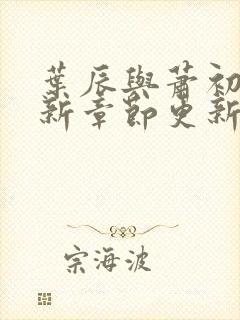 葉辰與蕭初
新章節更新
宗海波